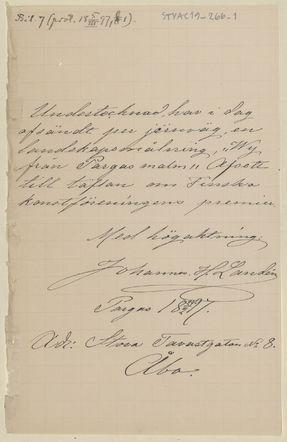 Bil. 7 (prot. 18 5/III 97, § 1).
STYAC19-266-1
Undertecknad, har i dag
afsändt per järnväg, en
landskapsmålning, "Wy
från Pargas malm" Afsedt
till täflan om Finska
konstföreningens premier.
Med högaktning:
Johannes H. Landén
Pargas 18 97.
Adr: Stora Tavastgatan No 8.
Åbo.